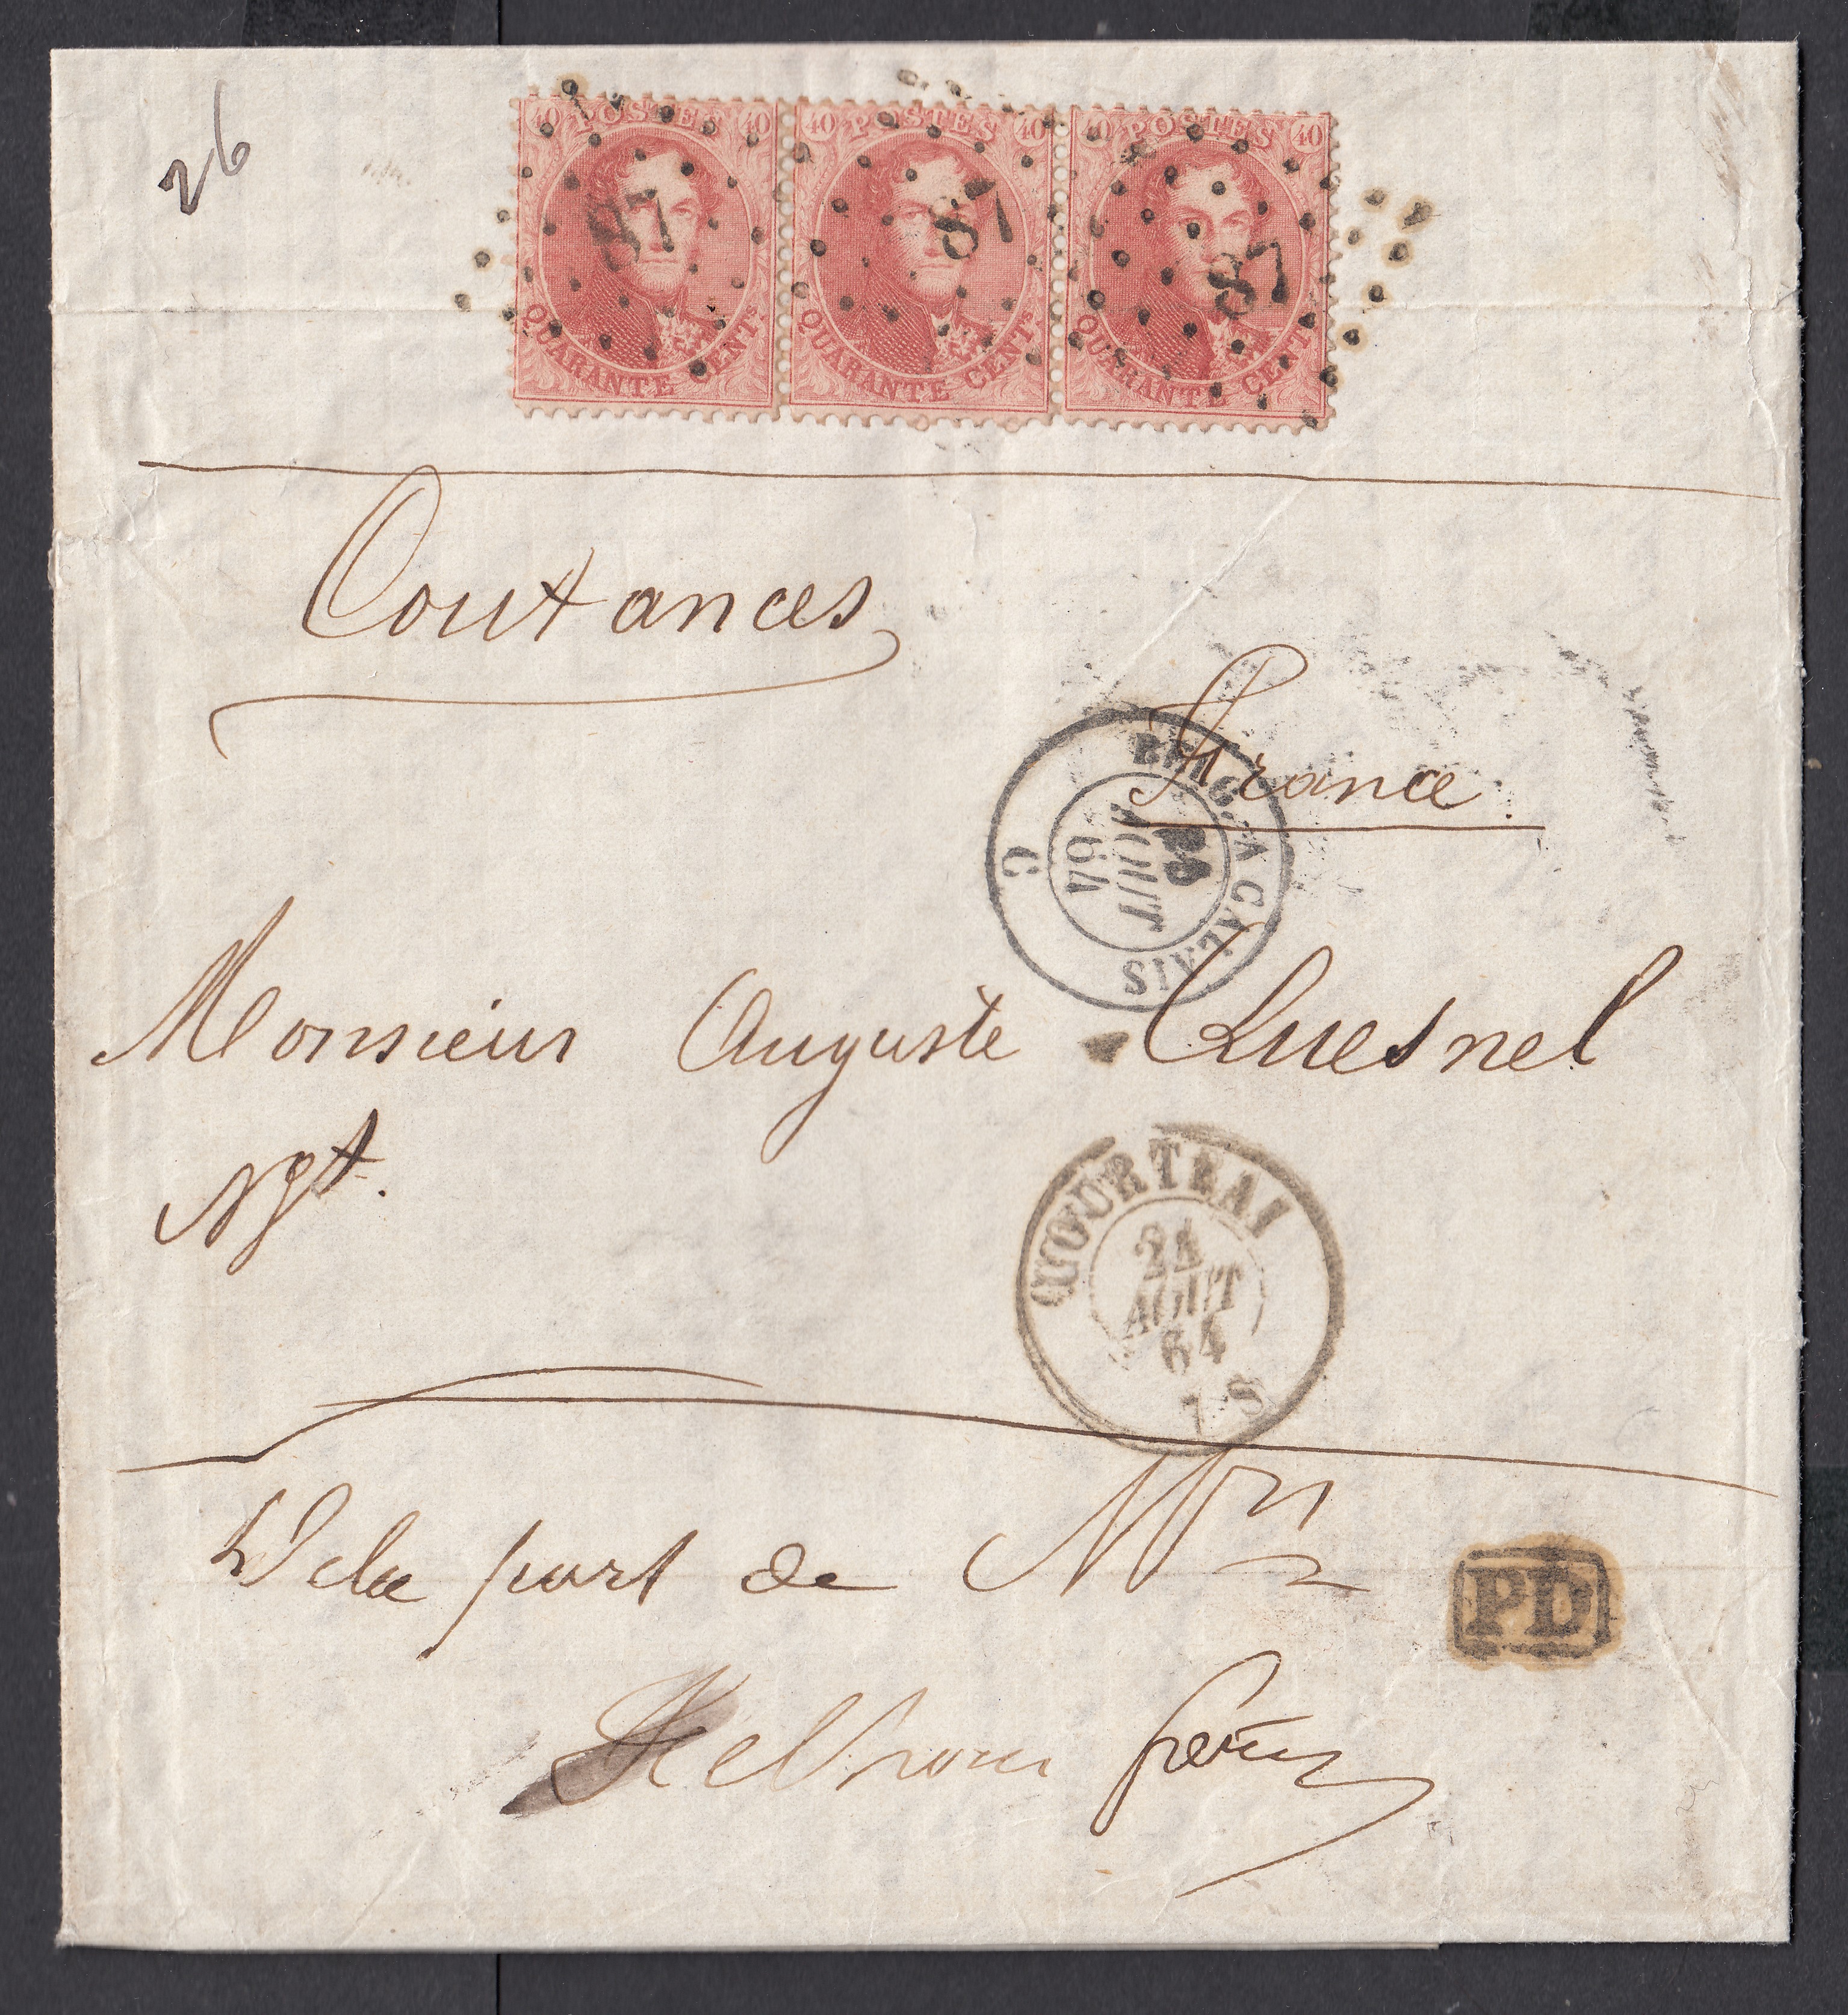 26
40 POSTES 40
QUARANTE CENTS
87
40 POSTES 40
QUARANTE CENTS
87
40 POSTES 40
QUARANTE CENTS
87
Coutances
France.
BELG. A CALAIS
AOUT
64
C
Monsieur Auguste Quesnel
Ngt.
COURTRAI
24
AOUT
64
7 S
Dela part de
PD
frères